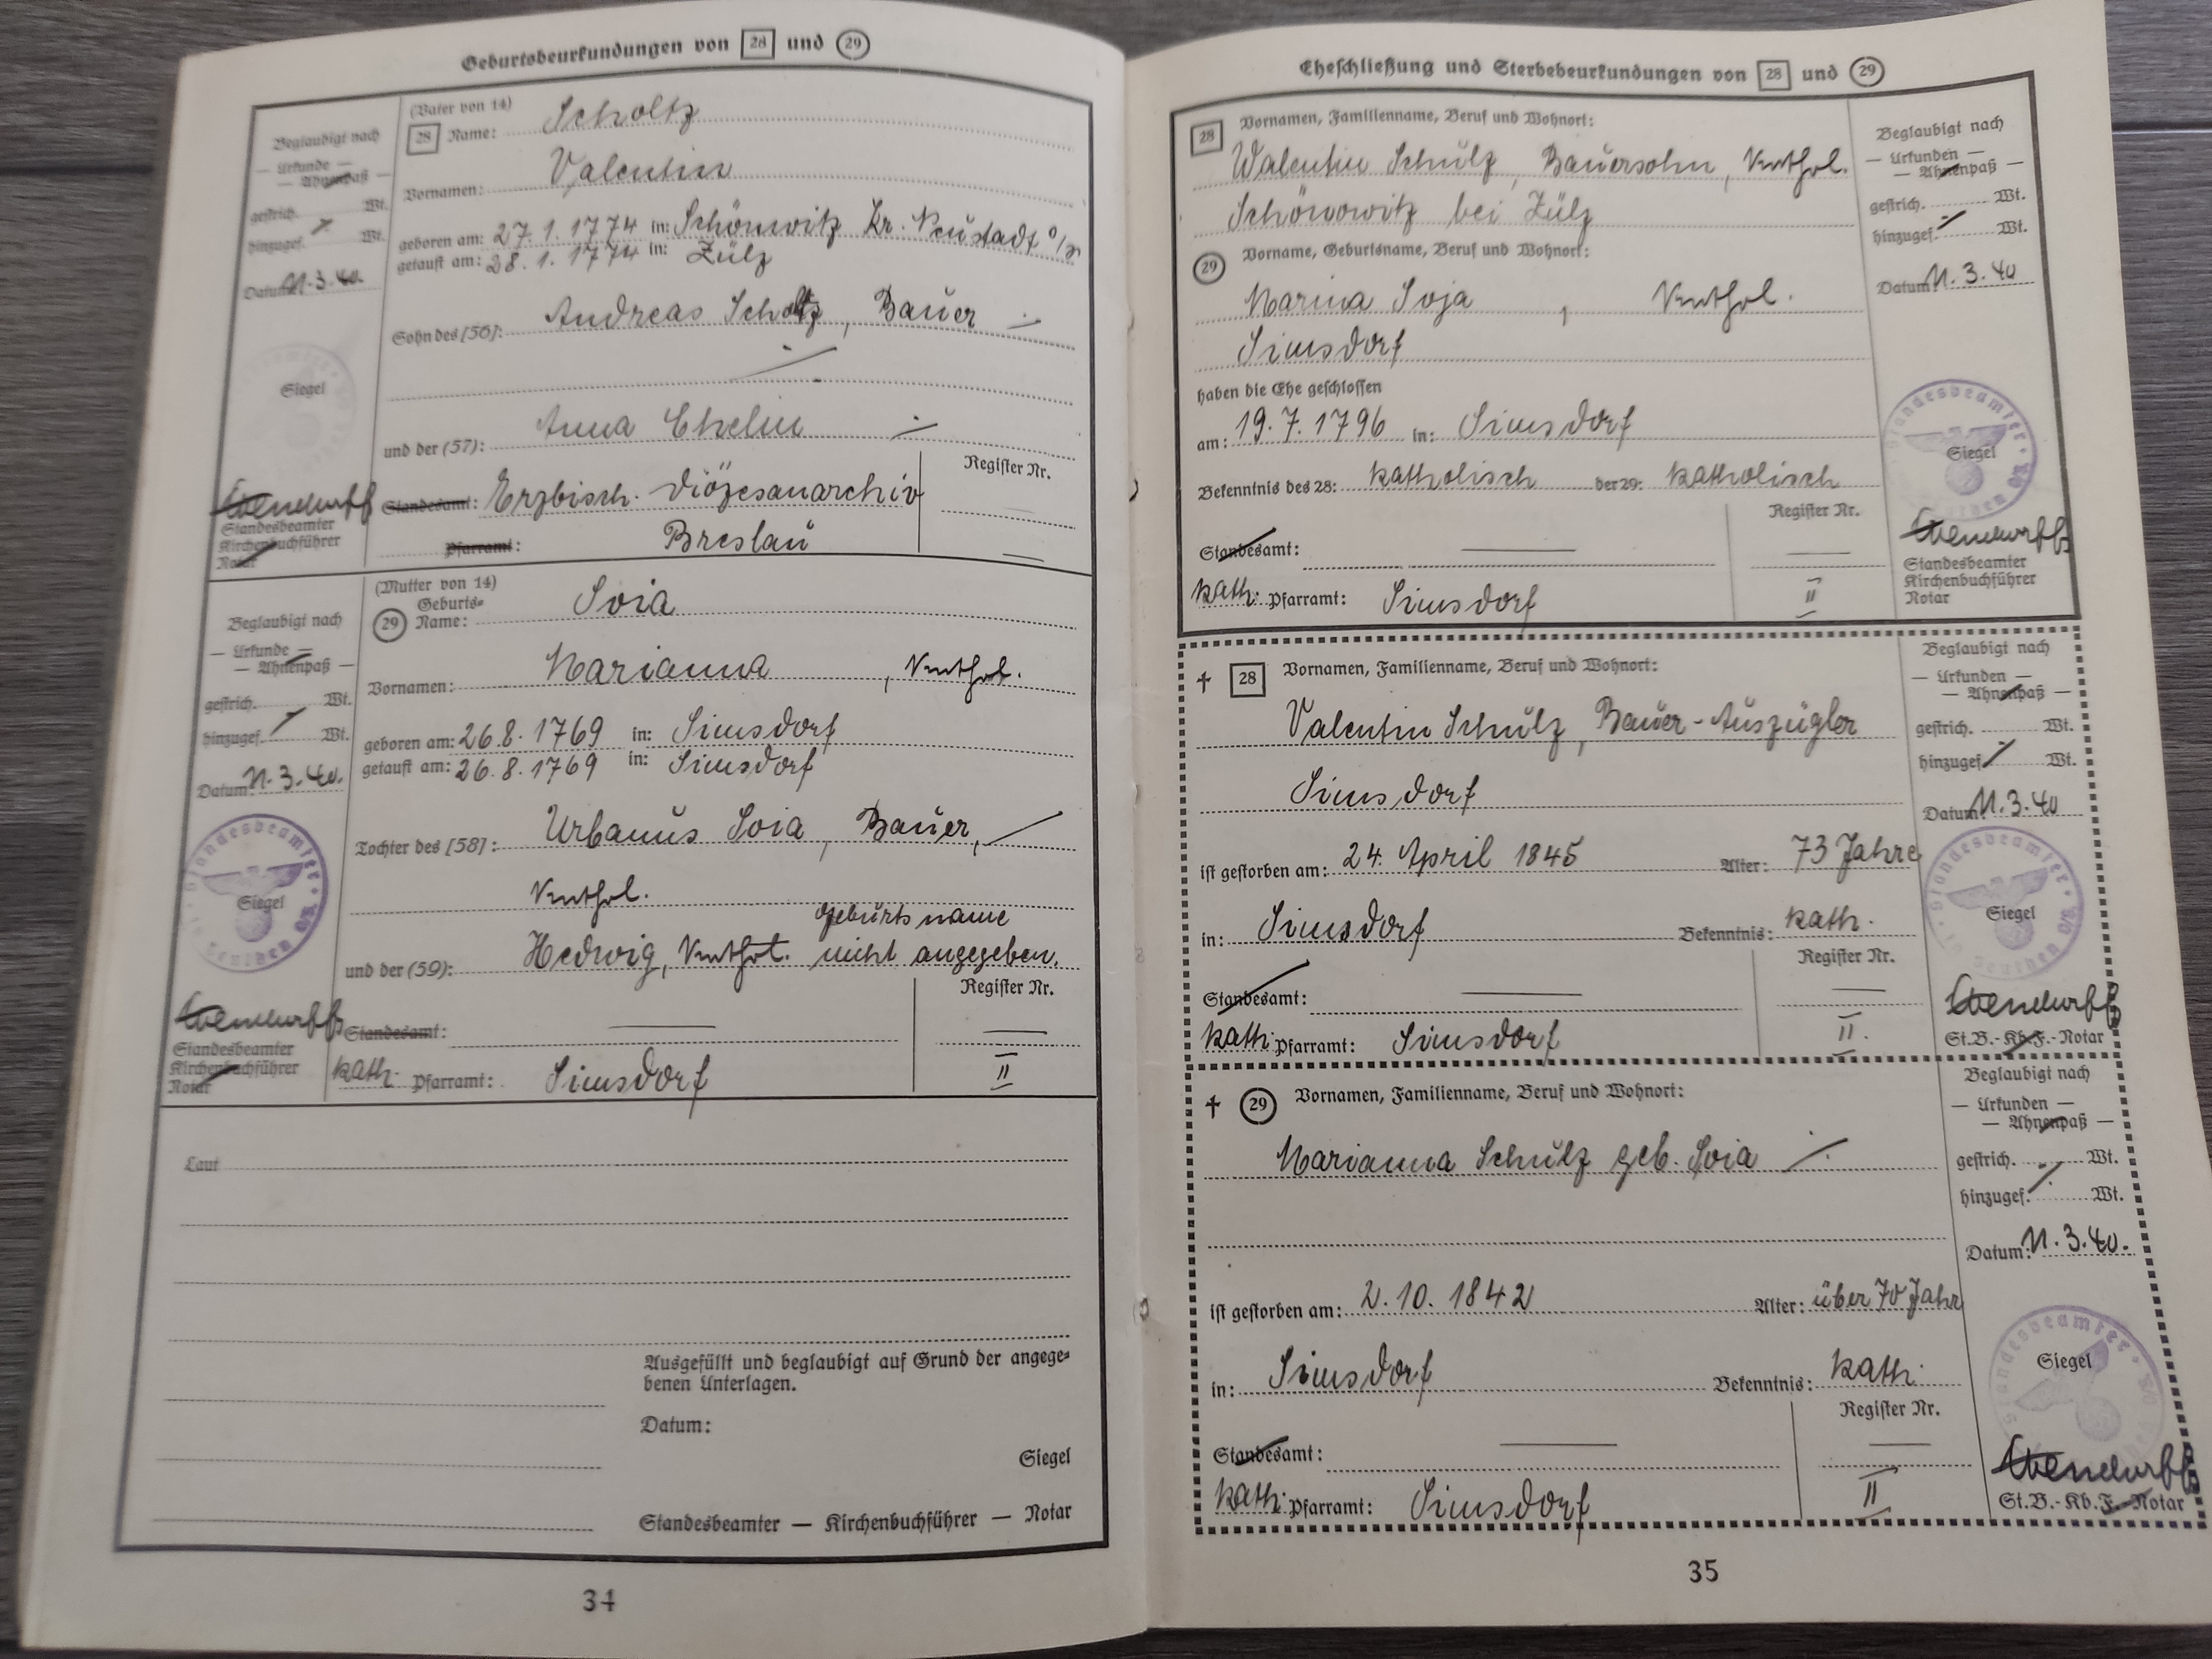 Geburtsbeurkundungen von 28 und 29
Beglaubigt nach
— Urkunde —
— Ahnenpaß —
gestrich. Wt.
hinzugef. Wt.
Datum 11.3.40.
Siegel
Standesbeamter
Kirchenbuchführer
Notar
(Vater von 14)
28 Name: Scholtz
Vornamen: Valentin
geboren am: 27.1.1774 in: Schönwitz Kr. Neustadt O/S
getauft am: 28.1.1774 in: Zülz
Sohn des [56]: Andreas Scholtz, Bauer
und der (57): Anna Thelin
Register Nr.
Standesamt: Erzbisch. Diözesanarchiv
Pfarramt: Breslau
Beglaubigt nach
— Urkunde —
— Ahnenpaß —
gestrich. Wt.
hinzugef. Wt.
Datum 11.3.40.
Siegel
Standesbeamter
Kirchenbuchführer
Notar
(Mutter von 14)
29 Geburts=
Name: Soia
Vornamen: Marianna, kathol.
geboren am: 26.8.1769 in: Simsdorf
getauft am: 26.8.1769 in: Simsdorf
Tochter des [58]: Urbanus Soia, Bauer,
kathol.
Geburtsname
und der (59): Hedwig, kathol. nicht angegeben.
Register Nr.
Standesamt:
kath. Pfarramt: Simsdorf II
Laut
Ausgefüllt und beglaubigt auf Grund der angege=
benen Unterlagen.
Datum:
Siegel
Standesbeamter — Kirchenbuchführer — Notar
34
Eheschließung und Sterbebeurkundungen von 28 und 29
28 Vornamen, Familienname, Beruf und Wohnort:
Walentin Schulz, Bauersohn, kathol.
Schönowitz bei Zülz
29 Vorname, Geburtsname, Beruf und Wohnort:
Marina Soja, kathol.
Simsdorf
haben die Ehe geschlossen
am: 19.7.1796 in: Simsdorf
Bekenntnis des 28: katholisch der 29: katholisch
Register Nr.
Standesamt:
kath. Pfarramt: Simsdorf II
Beglaubigt nach
— Urkunden —
— Ahnenpaß —
gestrich. Wt.
hinzugef. Wt.
Datum 11.3.40
Siegel
Standesbeamter
Kirchenbuchführer
Notar
† 28 Vornamen, Familienname, Beruf und Wohnort:
Valentin Schulz, Bauer-Auszügler
Simsdorf
ist gestorben am: 24. April 1845 Alter: 73 Jahre
in: Simsdorf Bekenntnis: kath.
Register Nr.
Standesamt:
kath. Pfarramt: Simsdorf II.
Beglaubigt nach
— Urkunden —
— Ahnenpaß —
gestrich. Wt.
hinzugef. Wt.
Datum 11.3.40
Siegel
St.B.-Kb.F.-Notar
† 29 Vornamen, Familienname, Beruf und Wohnort:
Marianna Schulz geb. Soia
ist gestorben am: 2.10.1842 Alter: über 70 Jahr
in: Simsdorf Bekenntnis: kath.
Register Nr.
Standesamt:
kath. Pfarramt: Simsdorf II
Beglaubigt nach
— Urkunden —
— Ahnenpaß —
gestrich. Wt.
hinzugef. Wt.
Datum: 11.3.40.
Siegel
St.B.-Kb.F.-Notar
35